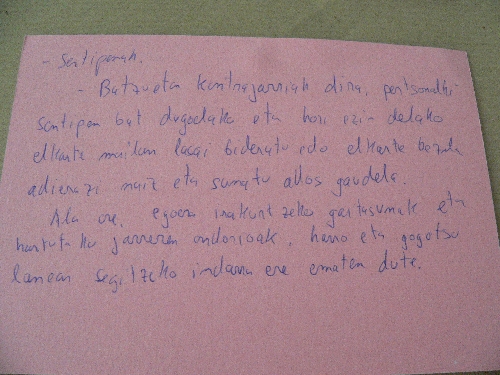 - Sentipenak.
- Batzuetan kontrajarriak dira, pertsonalki
sentipen bat dugoelako eta hori ezin delako
elkarte mailan lasai bideratu edo elkarte bezala
adierazi naiz eta sumatu ados gaudela.
Ala ere, egoera irakurtzeko gaitasunak eta
hartutako jarreren ondorioak, harro eta gogotsu
lanean segitzeko indarra ere ematen dute.